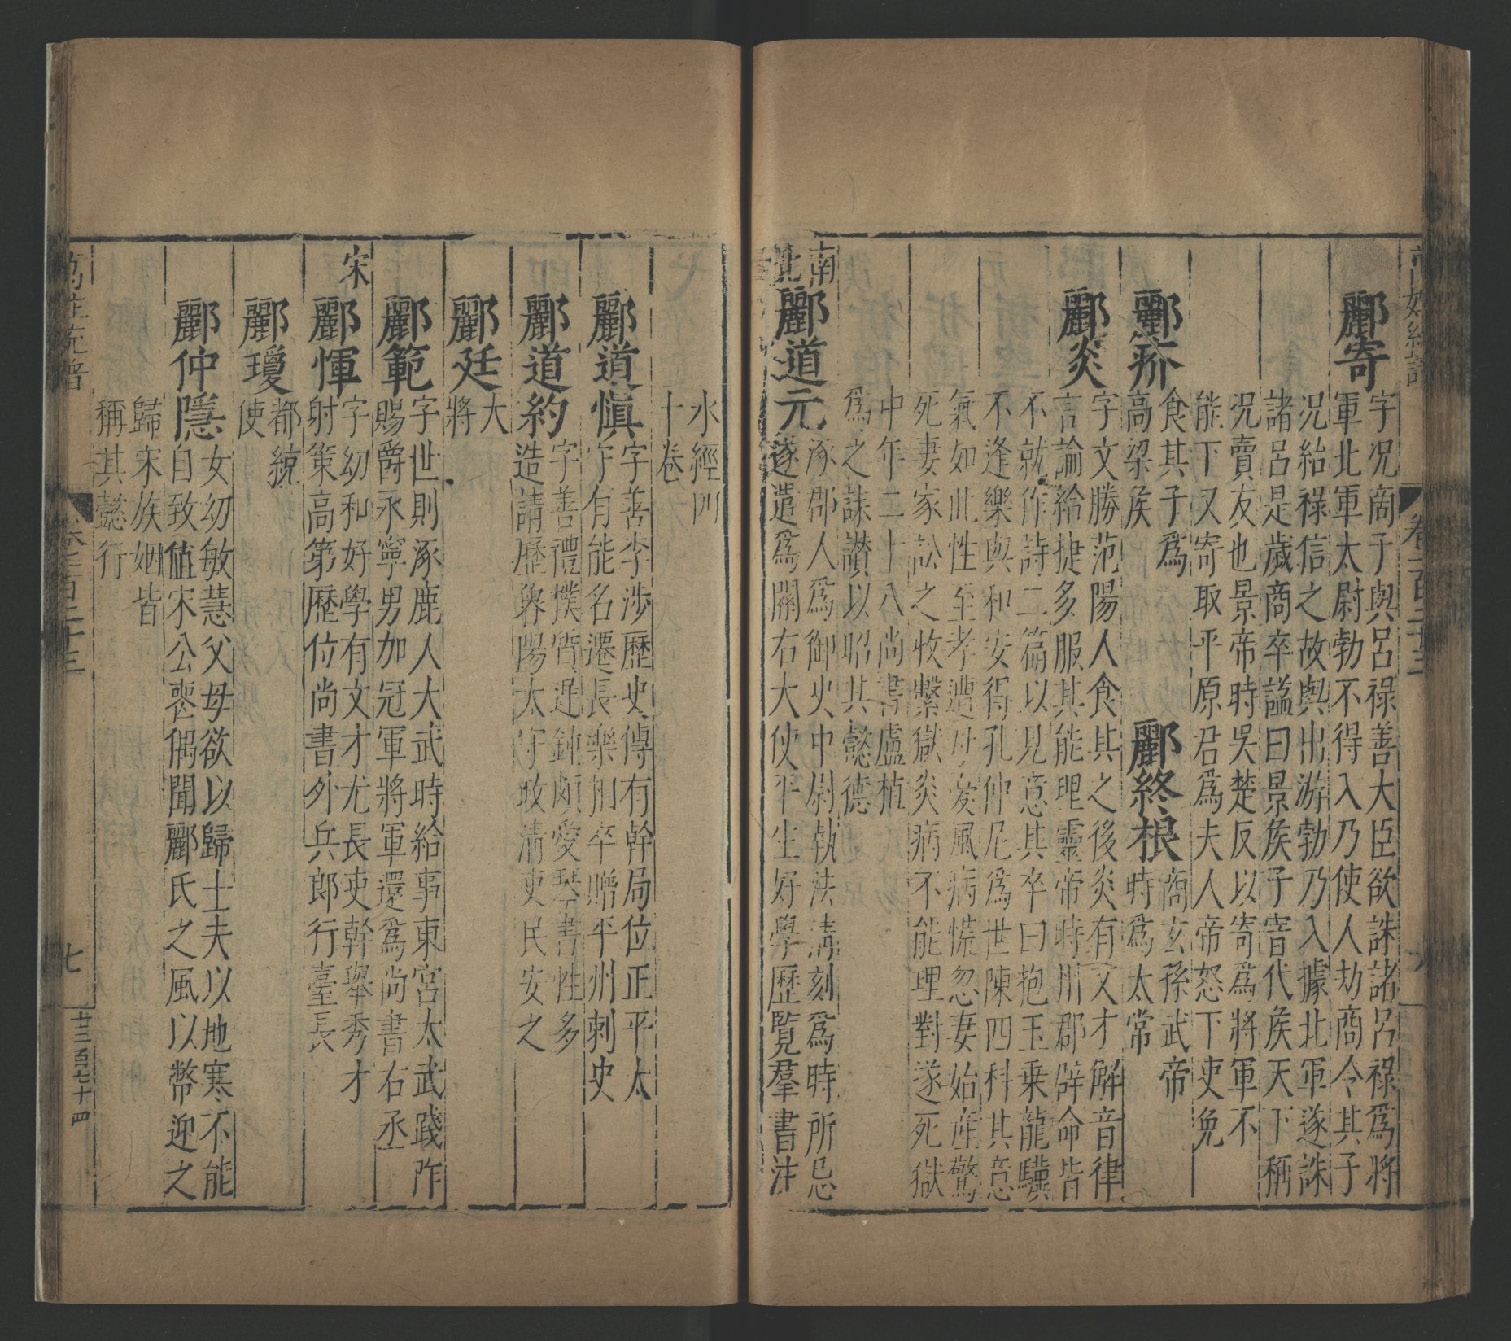 萬姓統譜
卷一百三十三
酈寄
字況商子與呂祿善大臣欲誅諸呂祿爲將
軍北軍太尉勃不得入乃使人劫商令其子
況紿祿信之故與出游勃乃入據北軍遂誅
諸呂是歲商卒謚曰景侯子寄代侯天下稱
況賣友也景帝時吳楚反以寄爲將軍不
能下又寄取平原君爲夫人帝怒下吏免
酈疥
食其子爲
高梁侯
酈終根
商玄孫武帝
時爲太常
酈炎
字文勝范陽人食其之後炎有文才解音律
言論給捷多服其能理靈帝時州郡辟命皆
不就作詩二篇以見意其卒曰抱玉乘龍驥
不逢樂與和安得孔仲尼爲世陳四科其意
氣如此性至孝遭母憂風病慌忽妻始產驚
死妻家訟之收繫獄炎病不能理對遂死獄
中年二十八尚書盧植
爲之誄讃以昭其懿德
南北
酈道元
涿郡人爲御史中尉執法清刻爲時所忌
遂遣爲關右大使平生好學歷覽羣書注
水經四
十卷
酈道愼
字善季涉歷史傳有幹局位正平太
守有能名遷長樂相卒贈平州刺史
酈道約
字善禮樸質遲鈍頗愛琴書性多
造請歷魯陽太守政清吏民安之
酈廷
大
將
酈範
字世則涿鹿人大武時給事東宮太武踐阼
賜爵永寧男加冠軍將軍還爲尚書右丞
酈惲
字幼和好學有文才尤長吏幹舉秀才
射策高第歷位尚書外兵郎行臺長
宋
酈瓊
都統
使
酈仲隱
女幼敏慧父母欲以歸士夫以地寒不能
自致值宋公喪偶聞酈氏之風以幣迎之
歸宋族姻皆
稱其懿行
萬姓統譜
卷一百三十三
七